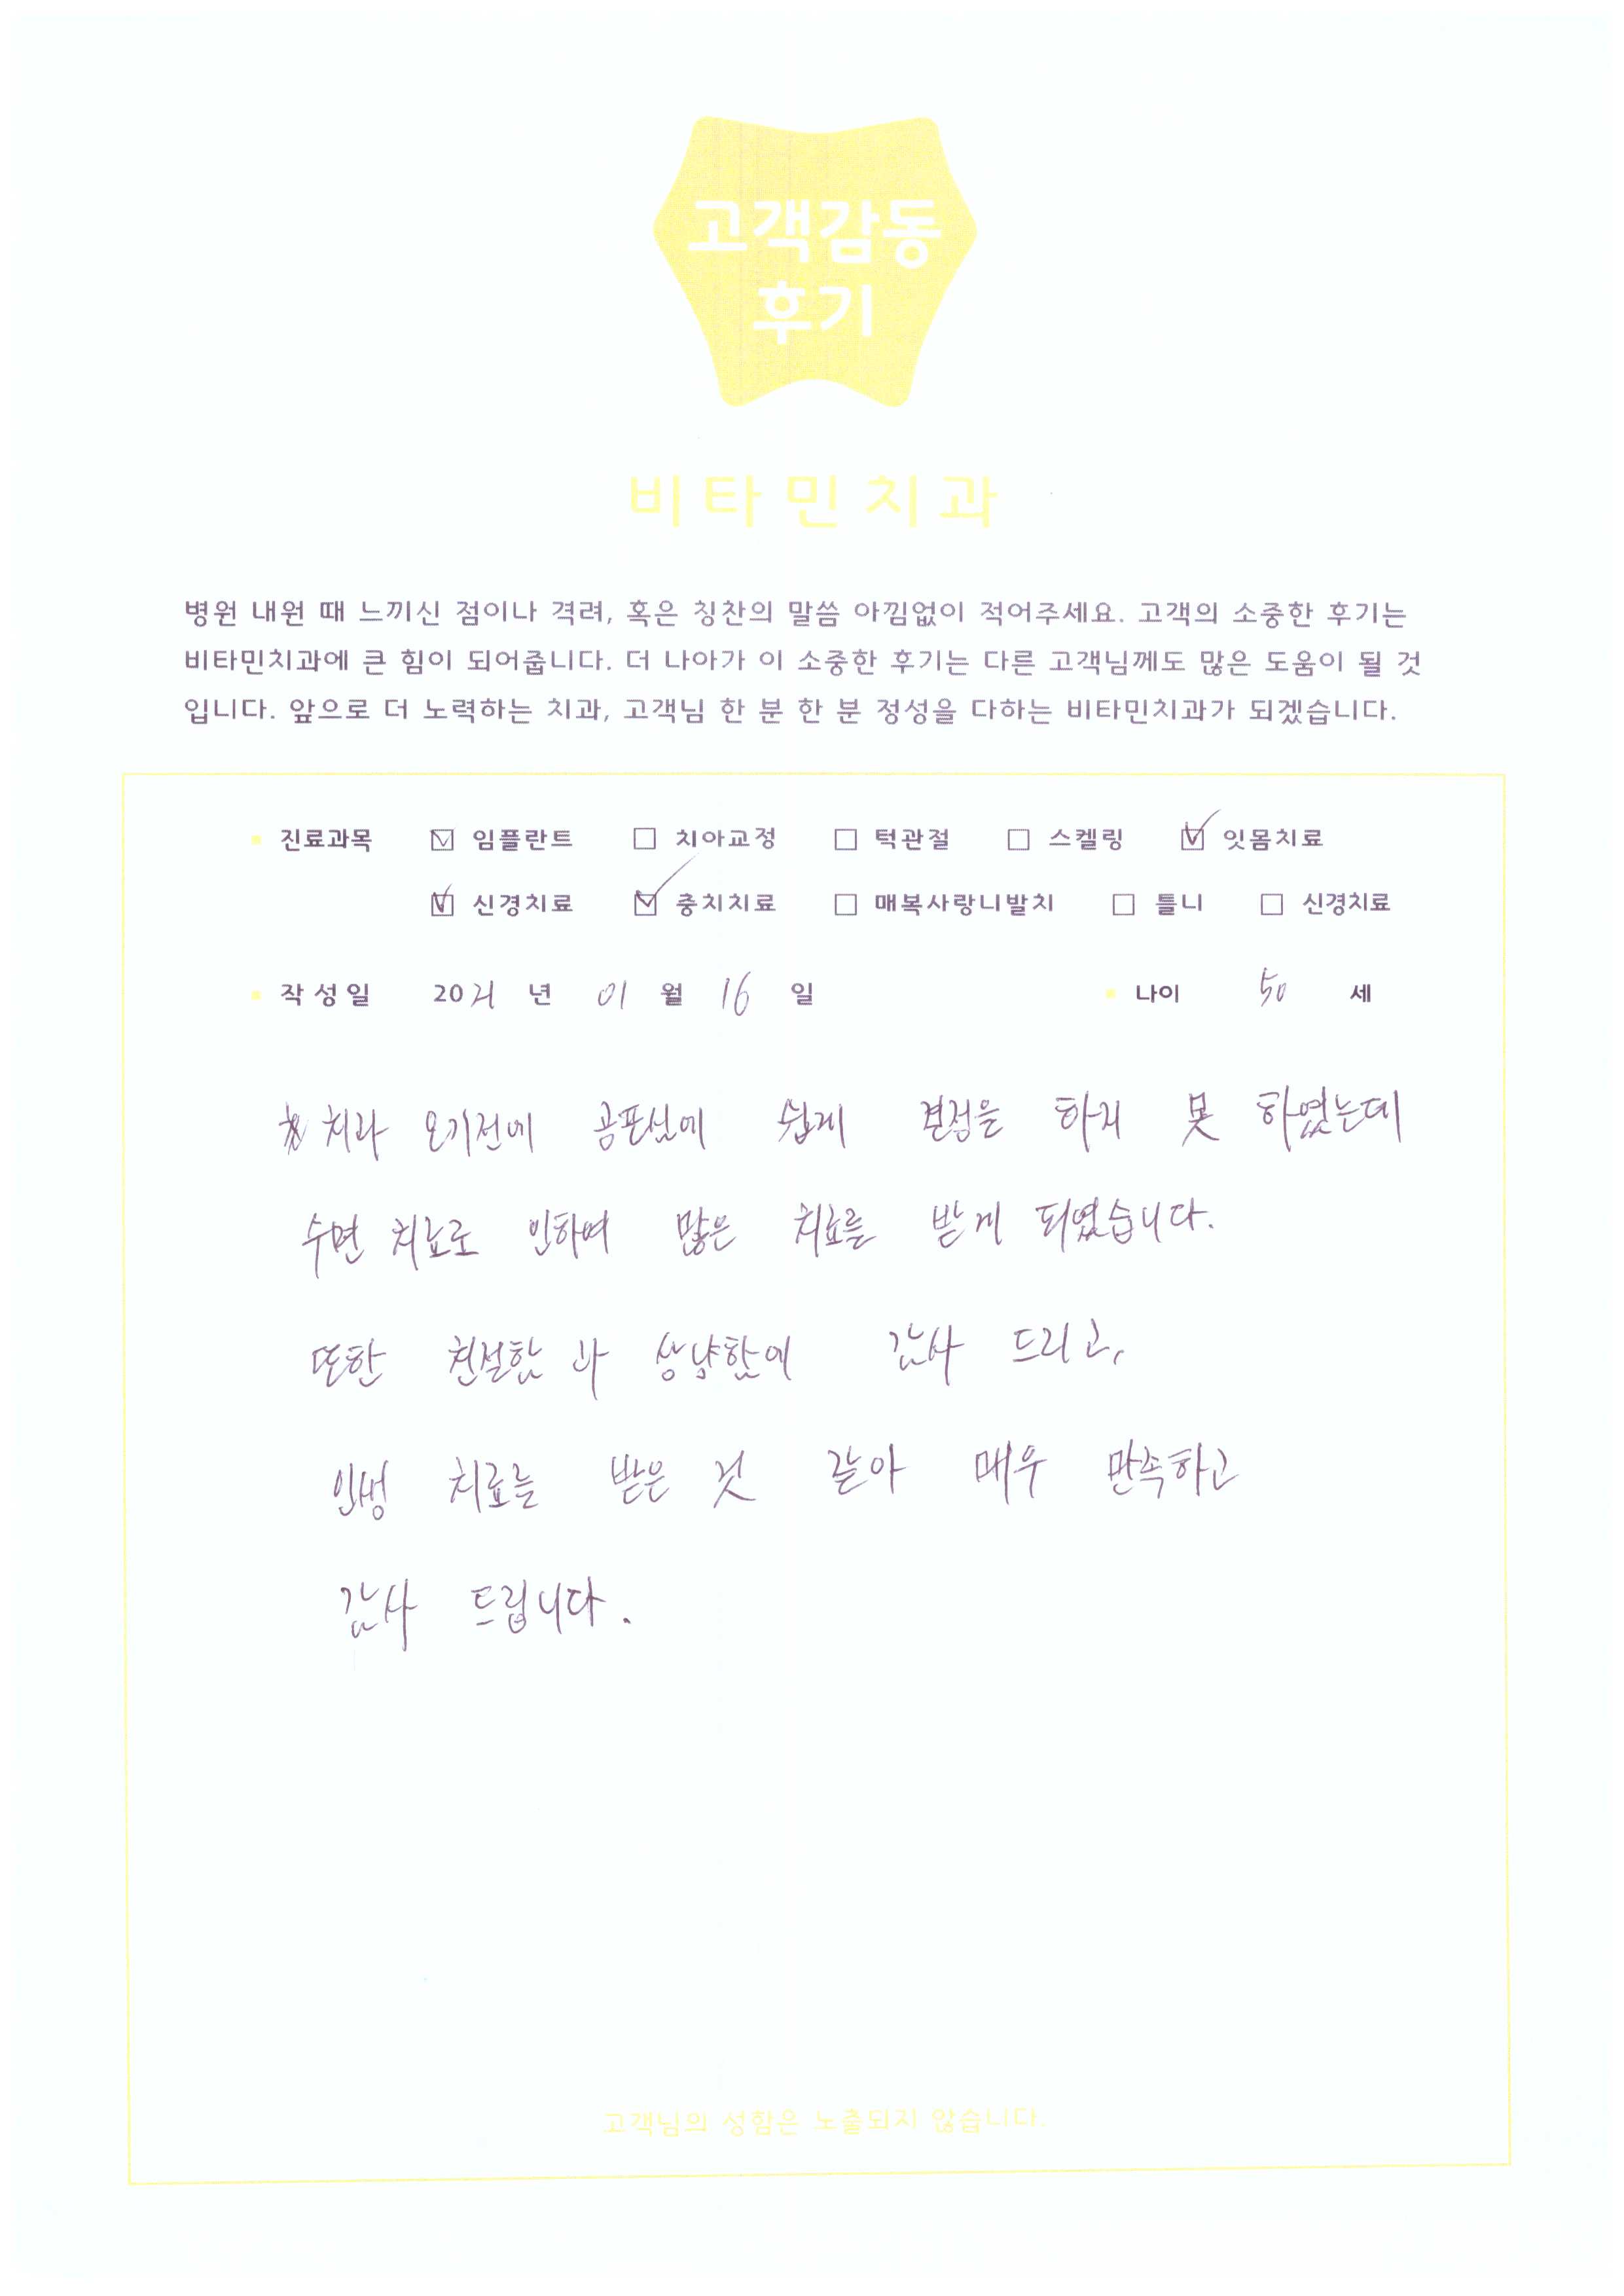 고객감동
후기
비타민치과
병원 내원 때 느끼신 점이나 격려, 혹은 칭찬의 말씀 아낌없이 적어주세요. 고객의 소중한 후기는
비타민치과에 큰 힘이 되어줍니다. 더 나아가 이 소중한 후기는 다른 고객님께도 많은 도움이 될 것
입니다. 앞으로 더 노력하는 치과, 고객님 한 분 한 분 정성을 다하는 비타민치과가 되겠습니다.
진료과목 ☑ 임플란트 ☐ 치아교정 ☐ 턱관절 ☐ 스켈링 ☑ 잇몸치료
☑ 신경치료 ☑ 충치치료 ☐ 매복사랑니발치 ☐ 틀니 ☐ 신경치료
작성일 2021 년 01 월 16 일 나이 50 세
치과 오기전에 공포심에 쉽게 결정을 하지 못 하였는데
수면 치료로 인하여 많은 치료를 받게 되였습니다.
또한 친절함 과 상냥함에 감사 드리고,
인생 치료를 받은 것 같아 매우 만족하고
감사 드립니다.
고객님의 성함은 노출되지 않습니다.